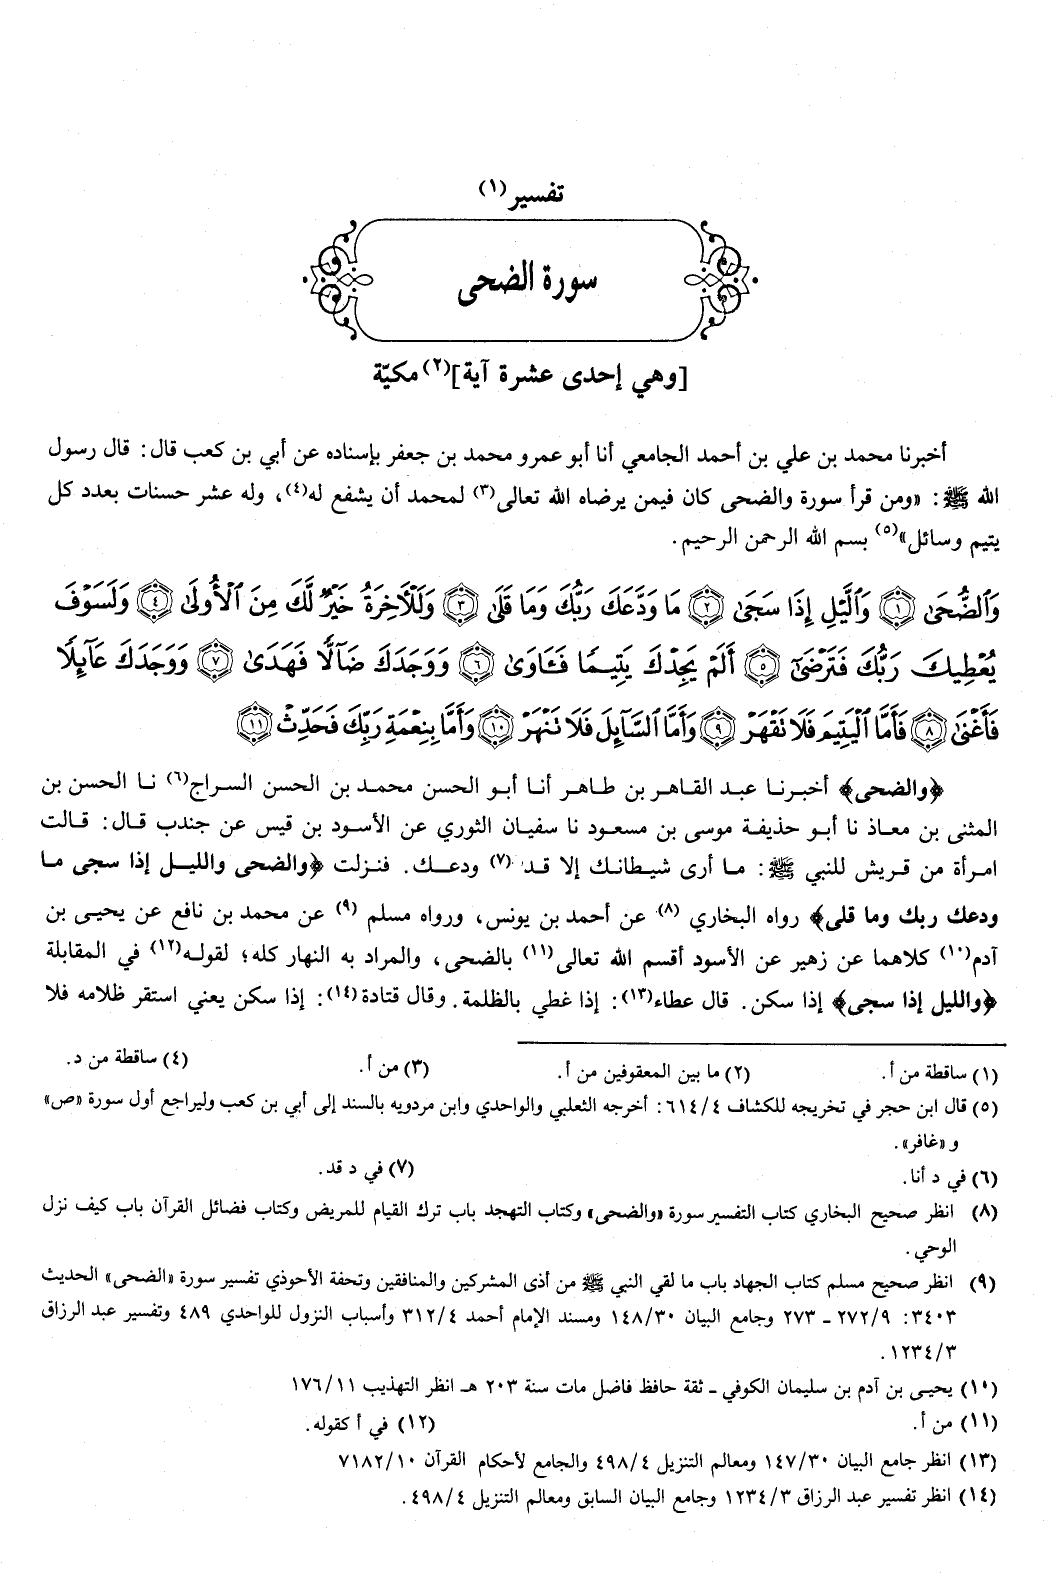 تفسير(١)
سورة الضحى
[وهي إحدى عشرة آية](٢) مكيّة
أخبرنا محمد بن علي بن أحمد الجامعي أنا أبو عمرو محمد بن جعفر بإسناده عن أبي بن كعب قال: قال رسول
الله ﷺ: «ومن قرأ سورة والضحى كان فيمن يرضاه الله تعالى(٣) لمحمد أن يشفع له(٤)، وله عشر حسنات بعدد كل
يتيم وسائل»(٥) بسم الله الرحمن الرحيم.
وَٱلضُّحَىٰ ۝١ وَٱلَّيۡلِ إِذَا سَجَىٰ ۝٢ مَا وَدَّعَكَ رَبُّكَ وَمَا قَلَىٰ ۝٣ وَلَلۡأٓخِرَةُ خَيۡرٞ لَّكَ مِنَ ٱلۡأُولَىٰ ۝٤ وَلَسَوۡفَ
يُعۡطِيكَ رَبُّكَ فَتَرۡضَىٰٓ ۝٥ أَلَمۡ يَجِدۡكَ يَتِيمٗا فَـَٔاوَىٰ ۝٦ وَوَجَدَكَ ضَآلّٗا فَهَدَىٰ ۝٧ وَوَجَدَكَ عَآئِلٗا
فَأَغۡنَىٰ ۝٨ فَأَمَّا ٱلۡيَتِيمَ فَلَا تَقۡهَرۡ ۝٩ وَأَمَّا ٱلسَّآئِلَ فَلَا تَنۡهَرۡ ۝١٠ وَأَمَّا بِنِعۡمَةِ رَبِّكَ فَحَدِّثۡ ۝١١
﴿والضحى﴾ أخبرنا عبد القاهر بن طاهر أنا أبو الحسن محمد بن الحسن السراج(٦) نا الحسن بن
المثنى بن معاذ نا أبو حذيفة موسى بن مسعود نا سفيان الثوري عن الأسود بن قيس عن جندب قال: قالت
امرأة من قريش للنبي ﷺ: ما أرى شيطانك إلا قد(٧) ودعك. فنزلت ﴿والضحى والليل إذا سجى ما
ودعك ربك وما قلى﴾ رواه البخاري(٨) عن أحمد بن يونس، ورواه مسلم(٩) عن محمد بن نافع عن يحيى بن
آدم(١٠) كلاهما عن زهير عن الأسود أقسم الله تعالى(١١) بالضحى، والمراد به النهار كله؛ لقوله(١٢) في المقابلة
﴿والليل إذا سجى﴾ إذا سكن. قال عطاء(١٣): إذا غطي بالظلمة. وقال قتادة(١٤): إذا سكن يعني استقر ظلامه فلا
(١) ساقطة من أ. (٢) ما بين المعقوفين من أ. (٣) من أ. (٤) ساقطة من د.
(٥) قال ابن حجر في تخريجه للكشاف ٦١٤/٤: أخرجه الثعلبي والواحدي وابن مردويه بالسند إلى أبي بن كعب وليراجع أول سورة «ص»
و «غافر».
(٦) في د أنا. (٧) في د قد.
(٨) انظر صحيح البخاري كتاب التفسير سورة «والضحى» وكتاب التهجد باب ترك القيام للمريض وكتاب فضائل القرآن باب كيف نزل
الوحي.
(٩) انظر صحيح مسلم كتاب الجهاد باب ما لقي النبي ﷺ من أذى المشركين والمنافقين وتحفة الأحوذي تفسير سورة «الضحى» الحديث
٣٤٠٣: ٢٧٢/٩ ـ ٢٧٣ وجامع البيان ١٤٨/٣٠ ومسند الإمام أحمد ٣١٢/٤ وأسباب النزول للواحدي ٤٨٩ وتفسير عبد الرزاق
١٢٣٤/٣.
(١٠) يحيى بن آدم بن سليمان الكوفي ـ ثقة حافظ فاضل مات سنة ٢٠٣ هـ انظر التهذيب ١٧٦/١١
(١١) من أ. (١٢) في أ كقوله.
(١٣) انظر جامع البيان ١٤٧/٣٠ ومعالم التنزيل ٤٩٨/٤ والجامع لأحكام القرآن ٧١٨٢/١٠
(١٤) انظر تفسير عبد الرزاق ١٢٣٤/٣ وجامع البيان السابق ومعالم التنزيل ٤٩٨/٤.